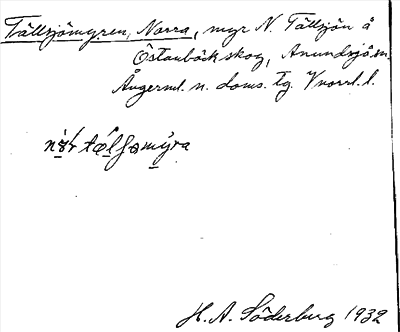 Tällsjömyren, Norra, myr N. Tällsjön å
Östanbäck skog, Anundsjö sn.
Ångerml. n. doms. tg. Vnorrl. l.
H. A. Söderburg 1932